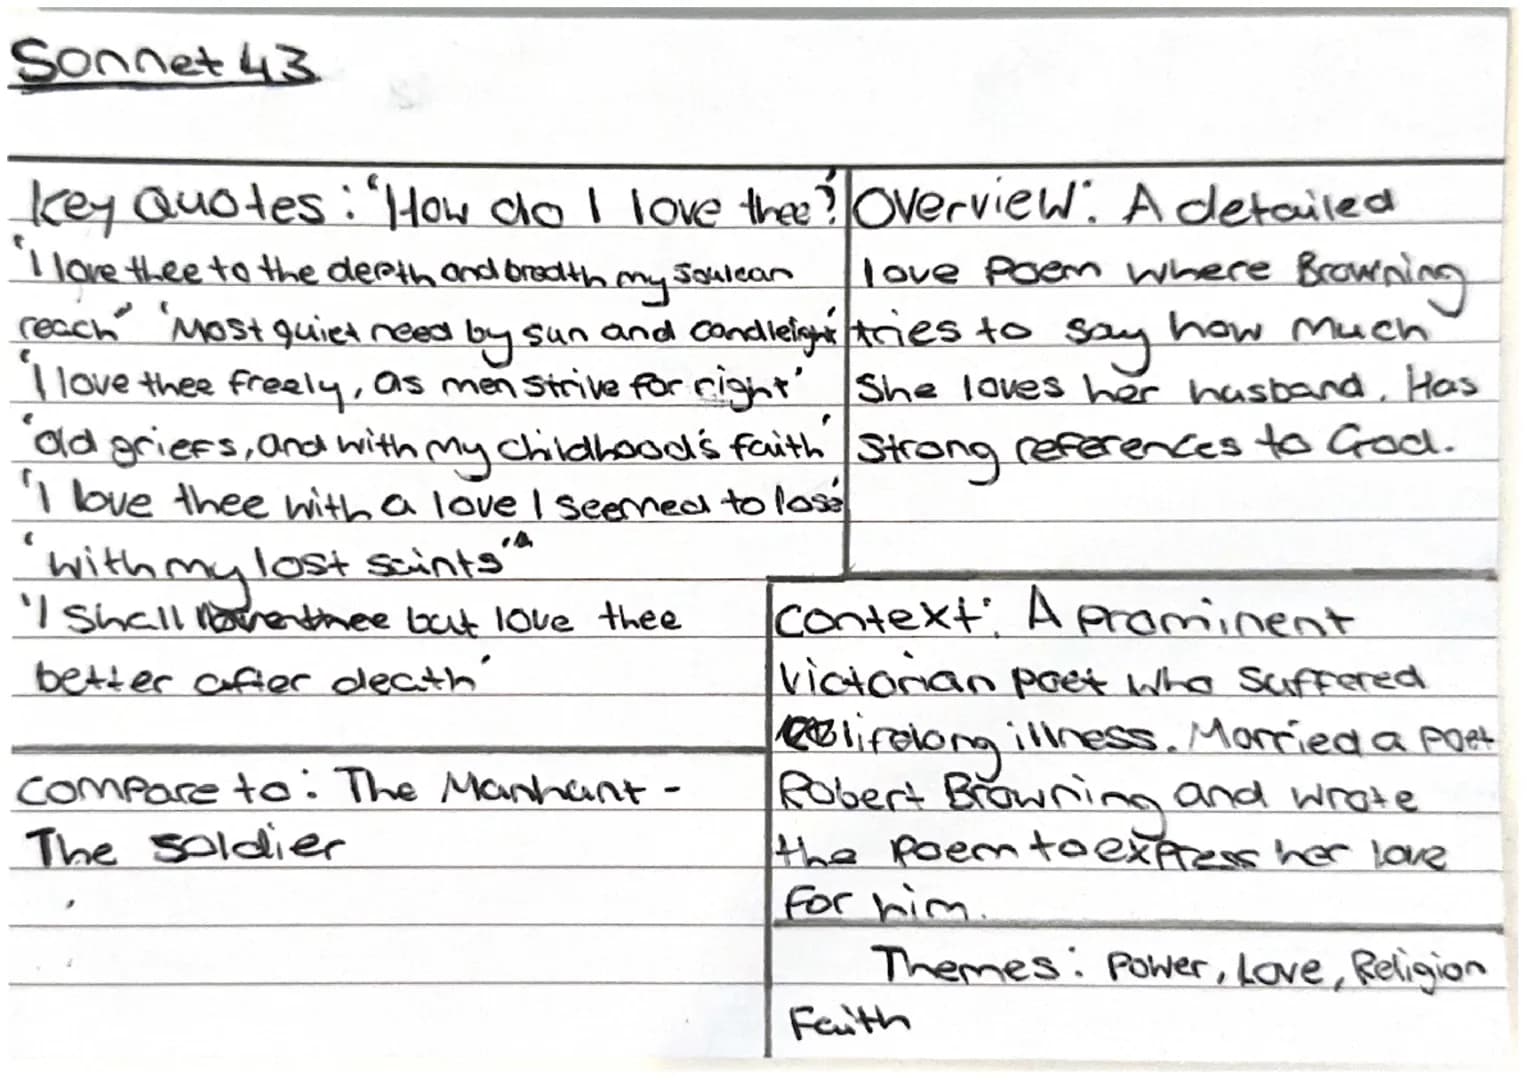 Sonnet 43
Key Quotes: 'How do I love thee?'
'I love thee to the depth and bredth my soul can
reach' 'Most quiet need by sun and candleight'
'I love thee freely, as men strive for right'
'old griefs, and with my childhood's faith'
'I love thee with a love I seemed to lose'
'with my lost saints'
'I shall but love thee
better after death'
Compare to: The Manhunt -
The soldier
Overview: A detailed
love poem where Browning
tries to say how much
she loves her husband. Has
strong references to God.
Context: A prominent
Victorian poet who suffered
lifelong illness. Married a poet
Robert Browning and wrote
the poem to express her love
for him.
Themes: Power, Love, Religion
Faith